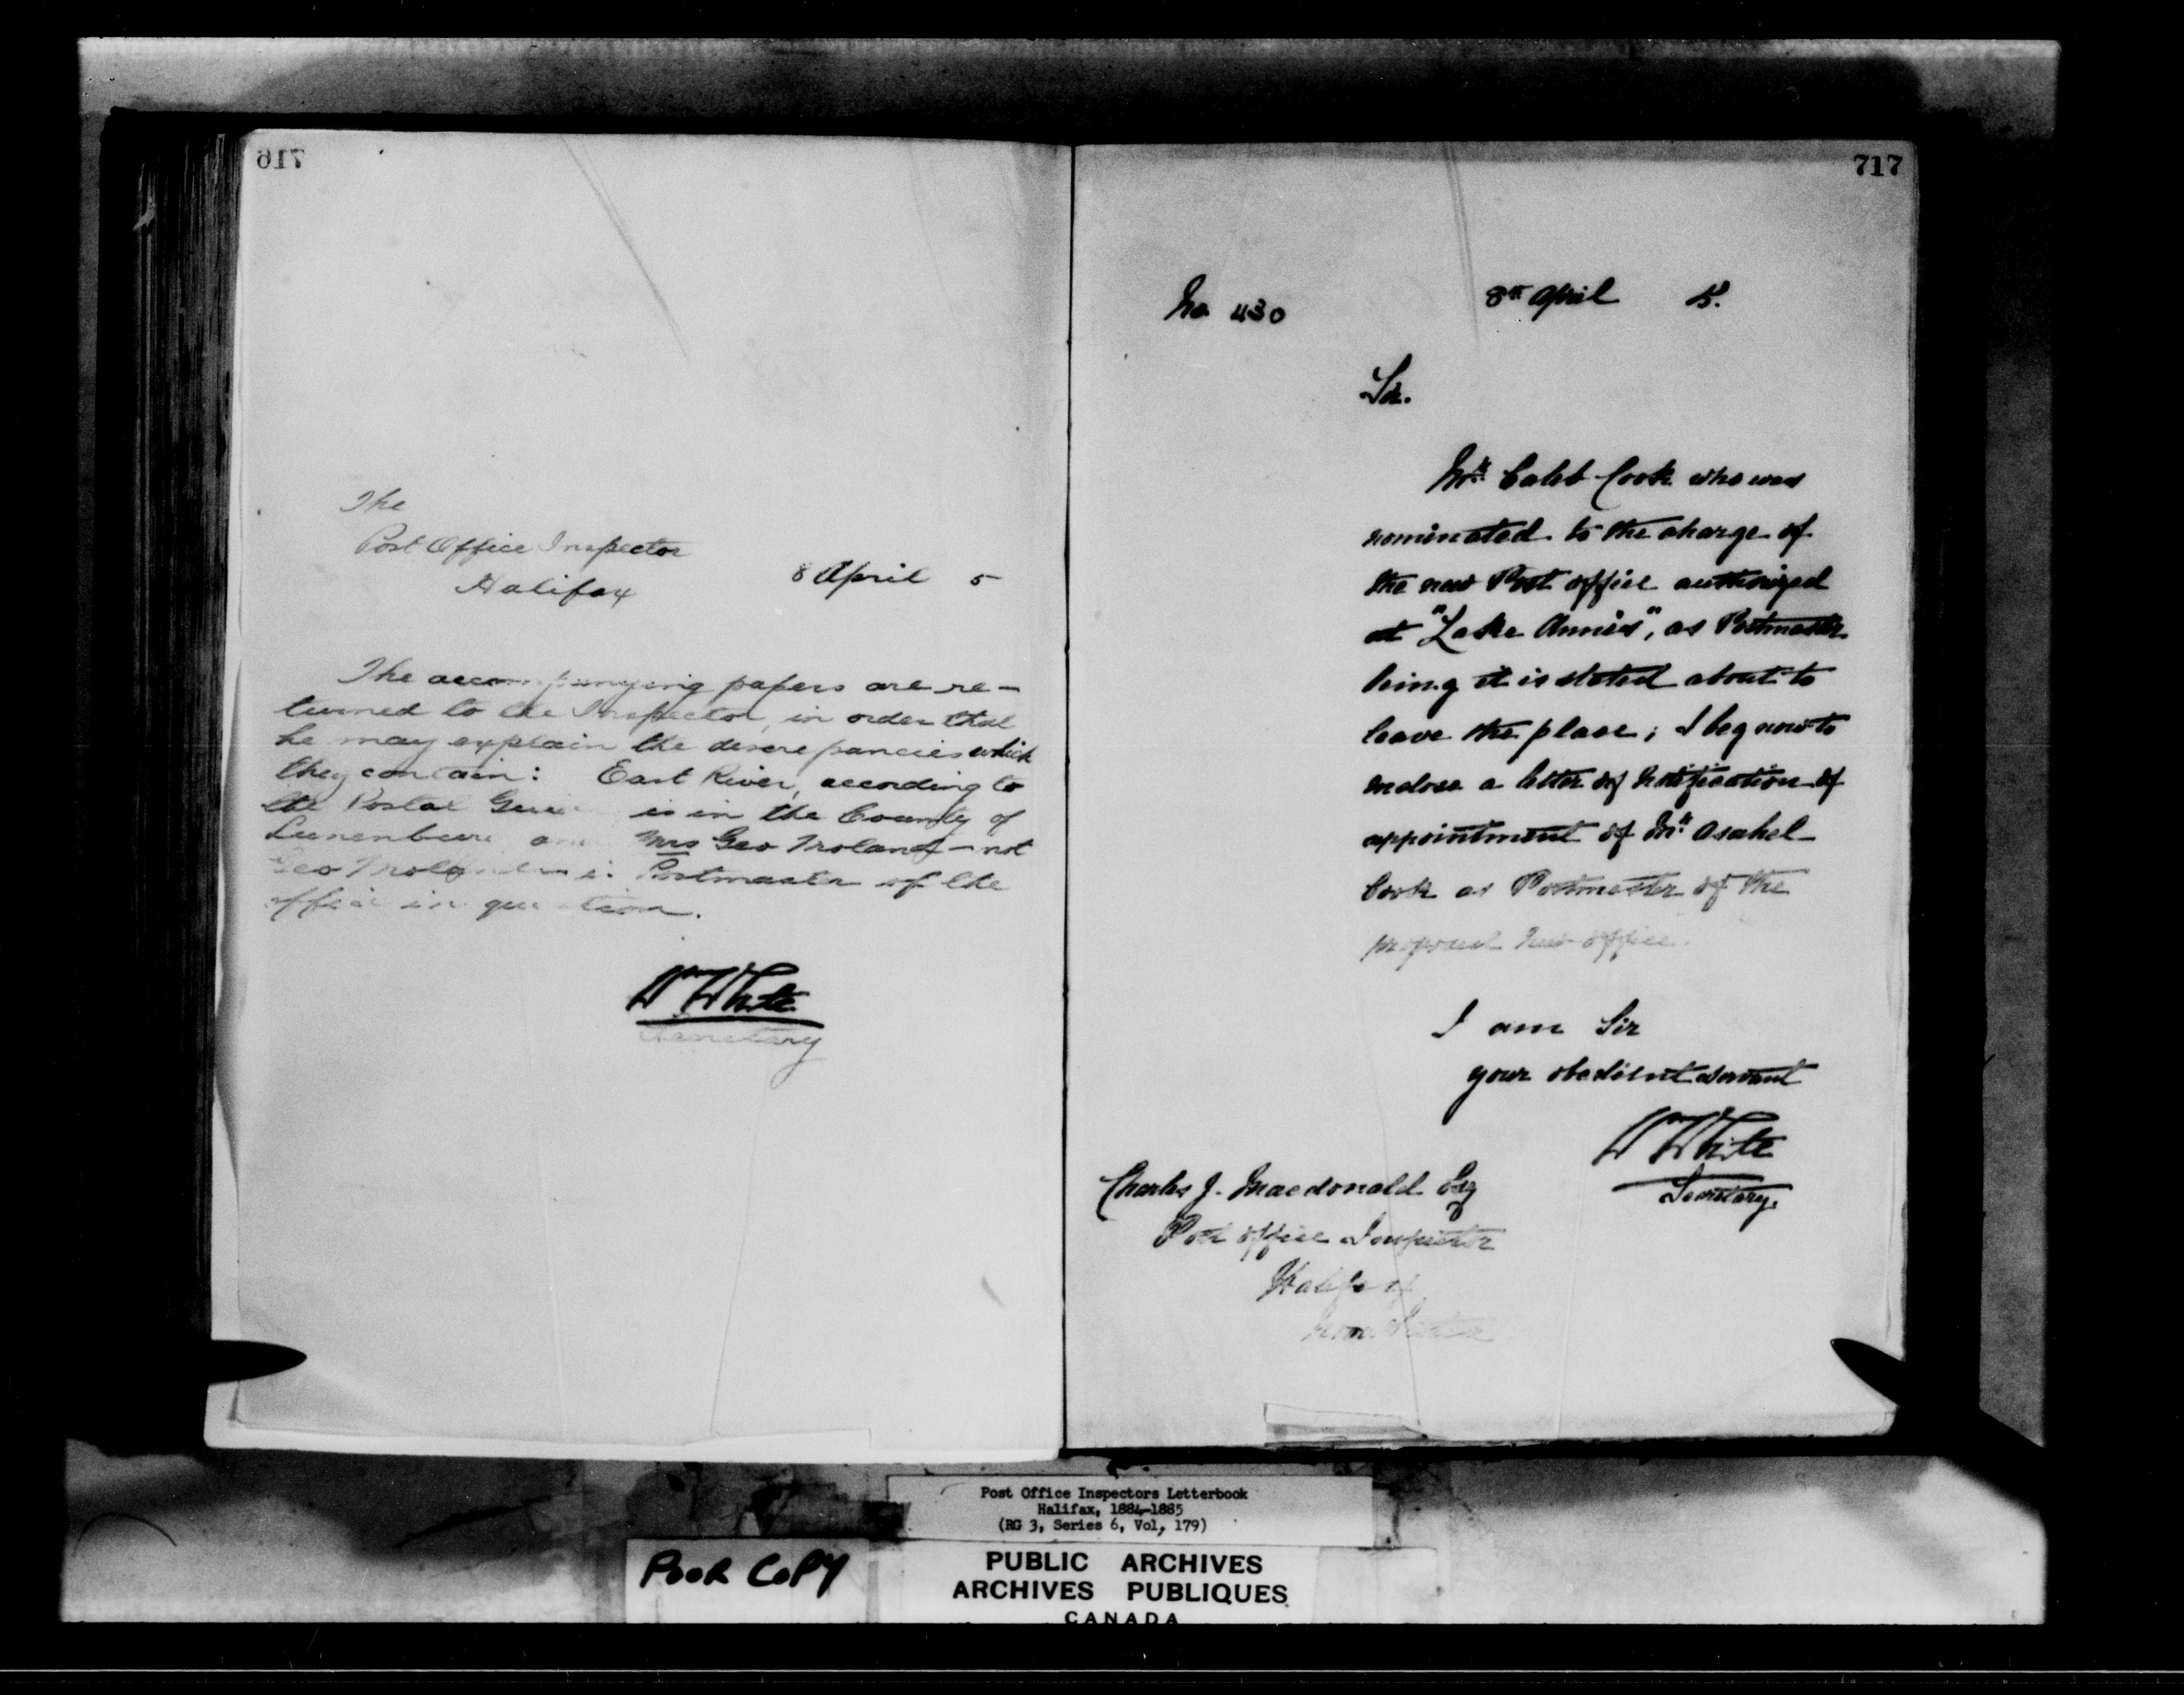 716
The
Post Office Inspector
Halifax
8 April 5
The accompanying papers are re-
turned to the Inspector, in order that
he may explain the discrepancies which
they contain: East River, according to
the Postal is in the County of
Mrs Geo - not
Geo Postmaster of the
office in question.
W White
Secretary
717
No 430
8th April 5.
Sir.
Mr. Caleb Cook who was
nominated to the charge of
the new Post office authorized
at "Lake Annis", as Postmaster
being it is stated about to
leave the place; I beg now to
enclose a letter of notification of
appointment of Mr. Asahel
Cook as Postmaster of the
proposed new office.
I am Sir
your obedient servant
W White
Secretary.
Charles J. Macdonald Esq
Post office Inspector
Halifax
Nova Scotia
Post Office Inspectors Letterbook
Halifax, 1884-1885
(RG 3, Series 6, Vol, 179)
POOR COPY
PUBLIC ARCHIVES
ARCHIVES PUBLIQUES
CANADA